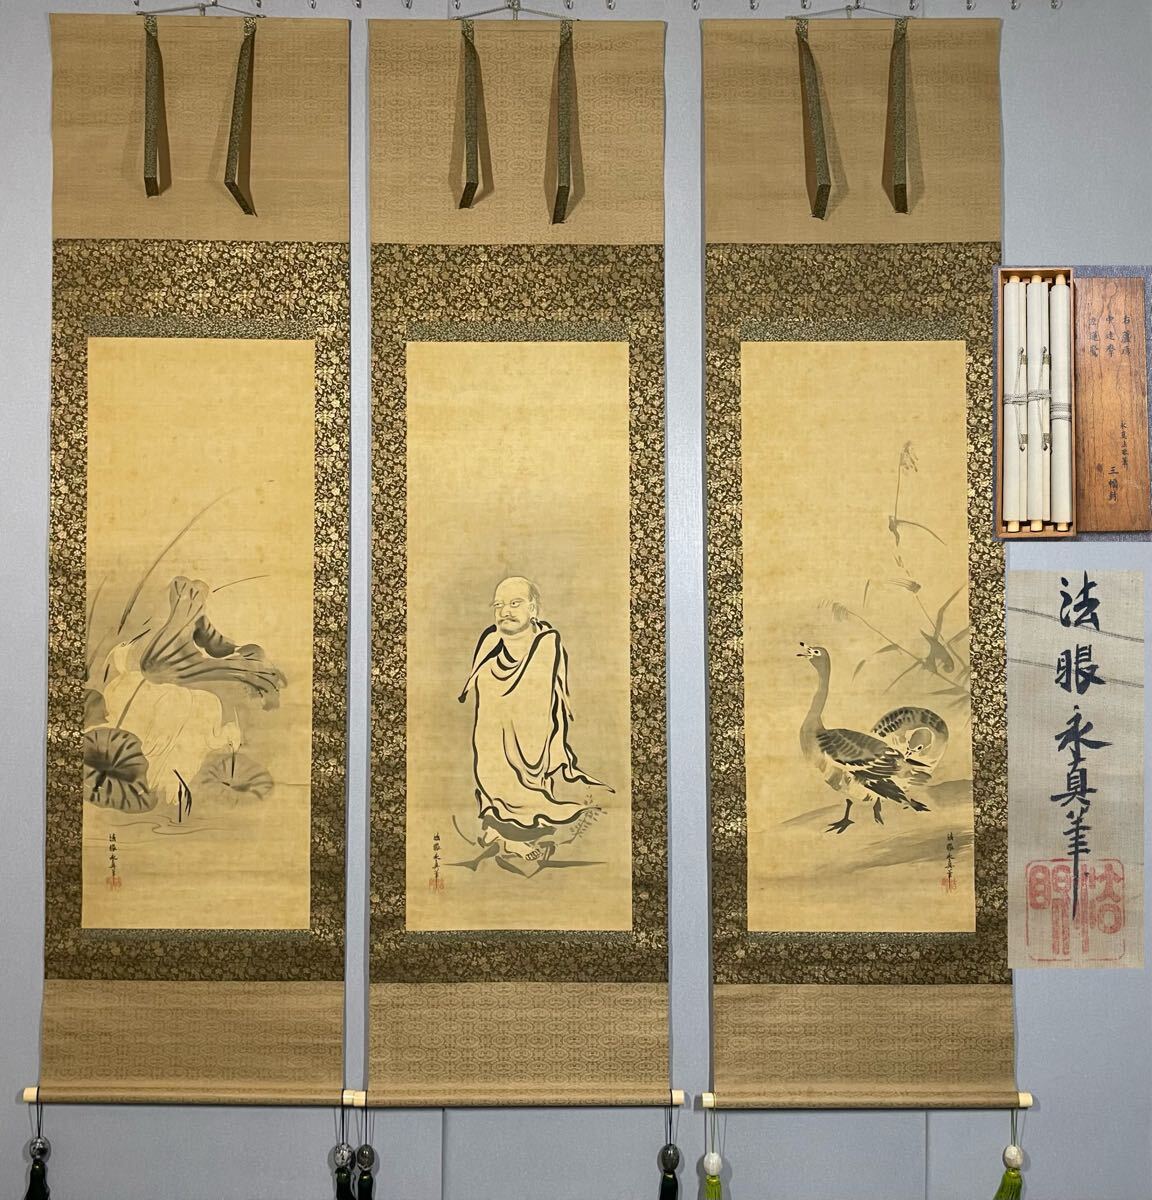 右蘆雁
中達摩
左蓮鷺
永真法眼筆
三幅対
法眼永真筆
法眼永真筆
法眼永真筆
法眼永真筆